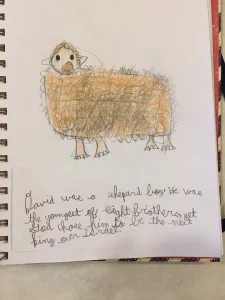 David was a shepard boy. He was
the youngest of eight brothers, yet
God chose him to be the next
king over Israel.